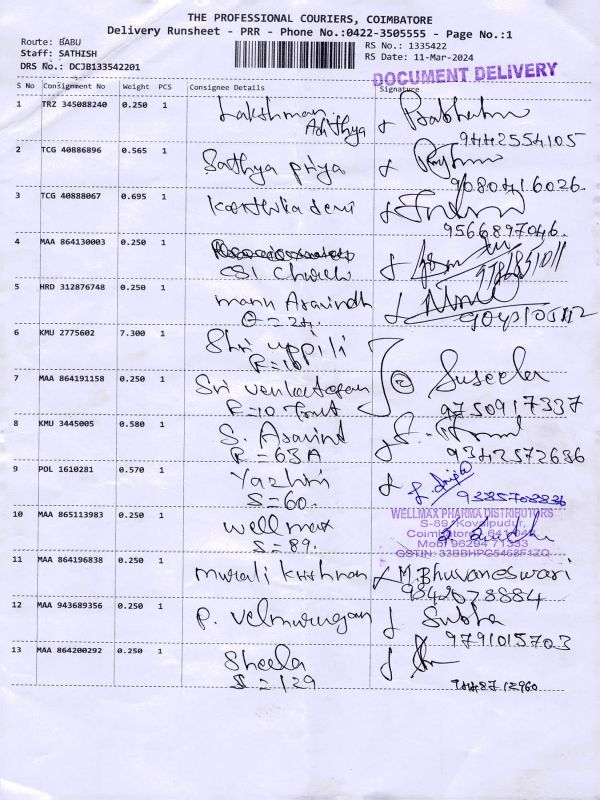 THE PROFESSIONAL COURIERS, COIMBATORE
Delivery Runsheet - PRR - Phone No.:0422-3505555 - Page No.:1
Route: BABU
RS No.: 1335422
Staff: SATHISH
RS Date: 11-Mar-2024
DRS No.: DCJB133542201
DOCUMENT DELIVERY
S No Consignment No Weight PCS Consignee Details Signature
1 TRZ 345088240 0.250 1 Lakshman
Adithya
9442554105
2 TCG 40886896 0.565 1 Sathya priya
9080416026
3 TCG 40888067 0.695 1 Karthika devi
9566897046
4 MAA 864130003 0.250 1
CSI Church
5 HRD 312876748 0.250 1 Aravindh
=24.
6 KMU 2775602 7.300 1 Shri uppili
R=10
7 MAA 864191158 0.250 1 Sri venkatesan Suseela
R=10 9750917337
8 KMU 3445005 0.580 1 S. Aravind
R=63A 9342572686
9 POL 1610281 0.570 1 Yazhni
S=60. 9385708836
10 MAA 865113983 0.250 1 well max
S=89.
WELLMAX PHARMA DISTRIBUTORS
S-89, Kovaipudur,
Coimbatore - 641 042
Mob: 96294 71333
GSTIN: 33BBHPG5468F1ZQ
11 MAA 864196838 0.250 1 murali krishnan M.Bhuvaneswari
9842078884
12 MAA 943689356 0.250 1 P. Velmurugan Subha
9791015703
13 MAA 864200292 0.250 1 Sheela
S=129